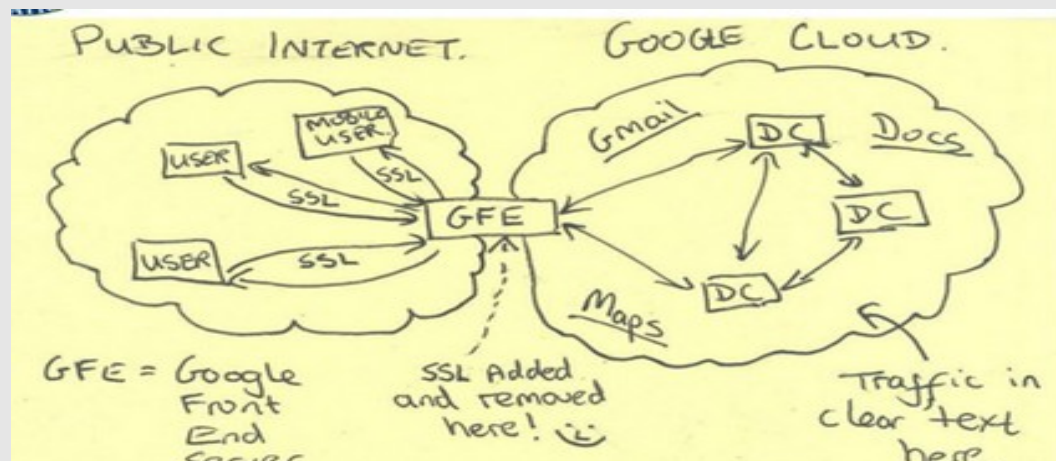 PUBLIC INTERNET.
GOOGLE CLOUD.
MOBILE
USER.
USER
SSL
SSL
GFE
USER
SSL
Gmail
DC
Docs
DC
DC
Maps
GFE = Google
Front
End
SSL Added
and removed
here!
Traffic in
clear text
here